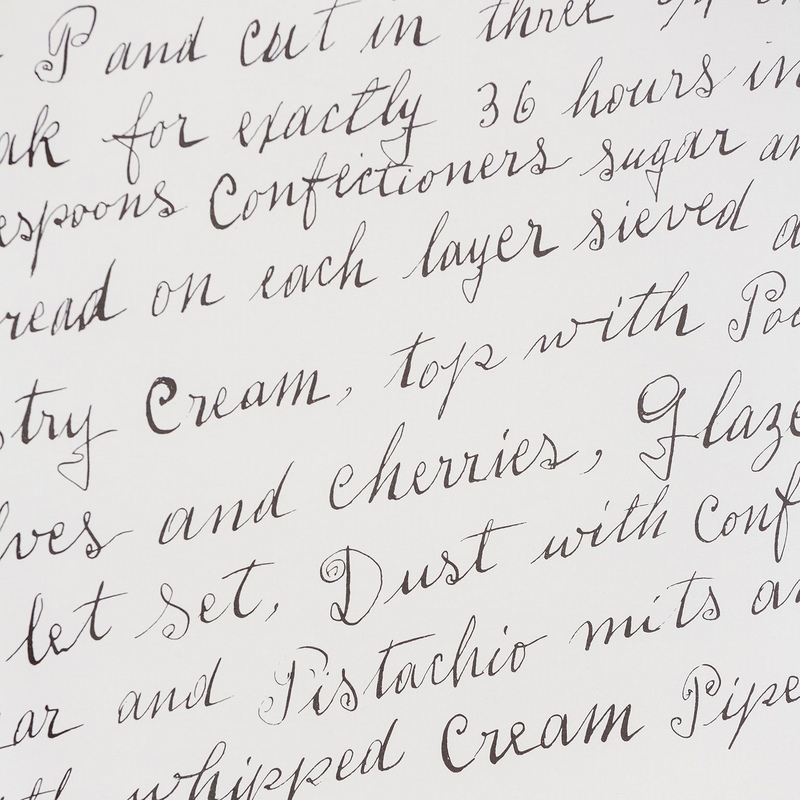 P and cut in three 3/4
ak for exactly 36 hours in
espoons Confectioners sugar an
read on each layer sieved a
stry Cream, top with Poa
lves and cherries, Glaze
let set, Dust with conf
ar and Pistachio mits an
th whipped Cream Pipe